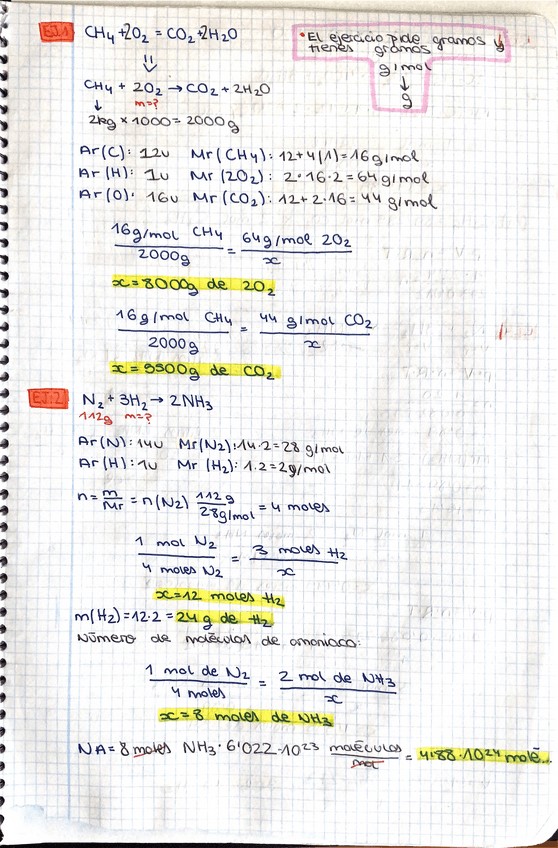 EJ.1 CH4 + 2O2 = CO2 + 2H2O
• El ejercicio pide gramos y
tienes gramos
g/mol
↓
g
⇓
CH4 + 2O2 → CO2 + 2H2O
↓ m=?
2kg × 1000 = 2000g
Ar(C): 12u Mr(CH4): 12+4(1)=16g/mol
Ar(H): 1u Mr(2O2): 2·16·2=64g/mol
Ar(O): 16u Mr(CO2): 12+2·16=44 g/mol
16g/mol CH4 / 2000g = 64g/mol 2O2 / x
x=8000g de 2O2
16g/mol CH4 / 2000g = 44 g/mol CO2 / x
x=5500g de CO2
EJ.2 N2 + 3H2 → 2NH3
112g m=?
Ar(N): 14u Mr(N2): 14·2=28 g/mol
Ar(H): 1u Mr (H2): 1·2=2g/mol
n = m/Mr = n(N2) 112g / 28g/mol = 4 moles
1 mol N2 / 4 moles N2 = 3 moles H2 / x
x=12 moles H2
m(H2)=12·2=24g de H2
Número de moléculas de amoniaco:
1 mol de N2 / 4 moles = 2 mol de NH3 / x
x=8 moles de NH3
NA= 8 moles NH3 · 6'022·10^23 moléculas / mol = 4'88·10^24 molé...